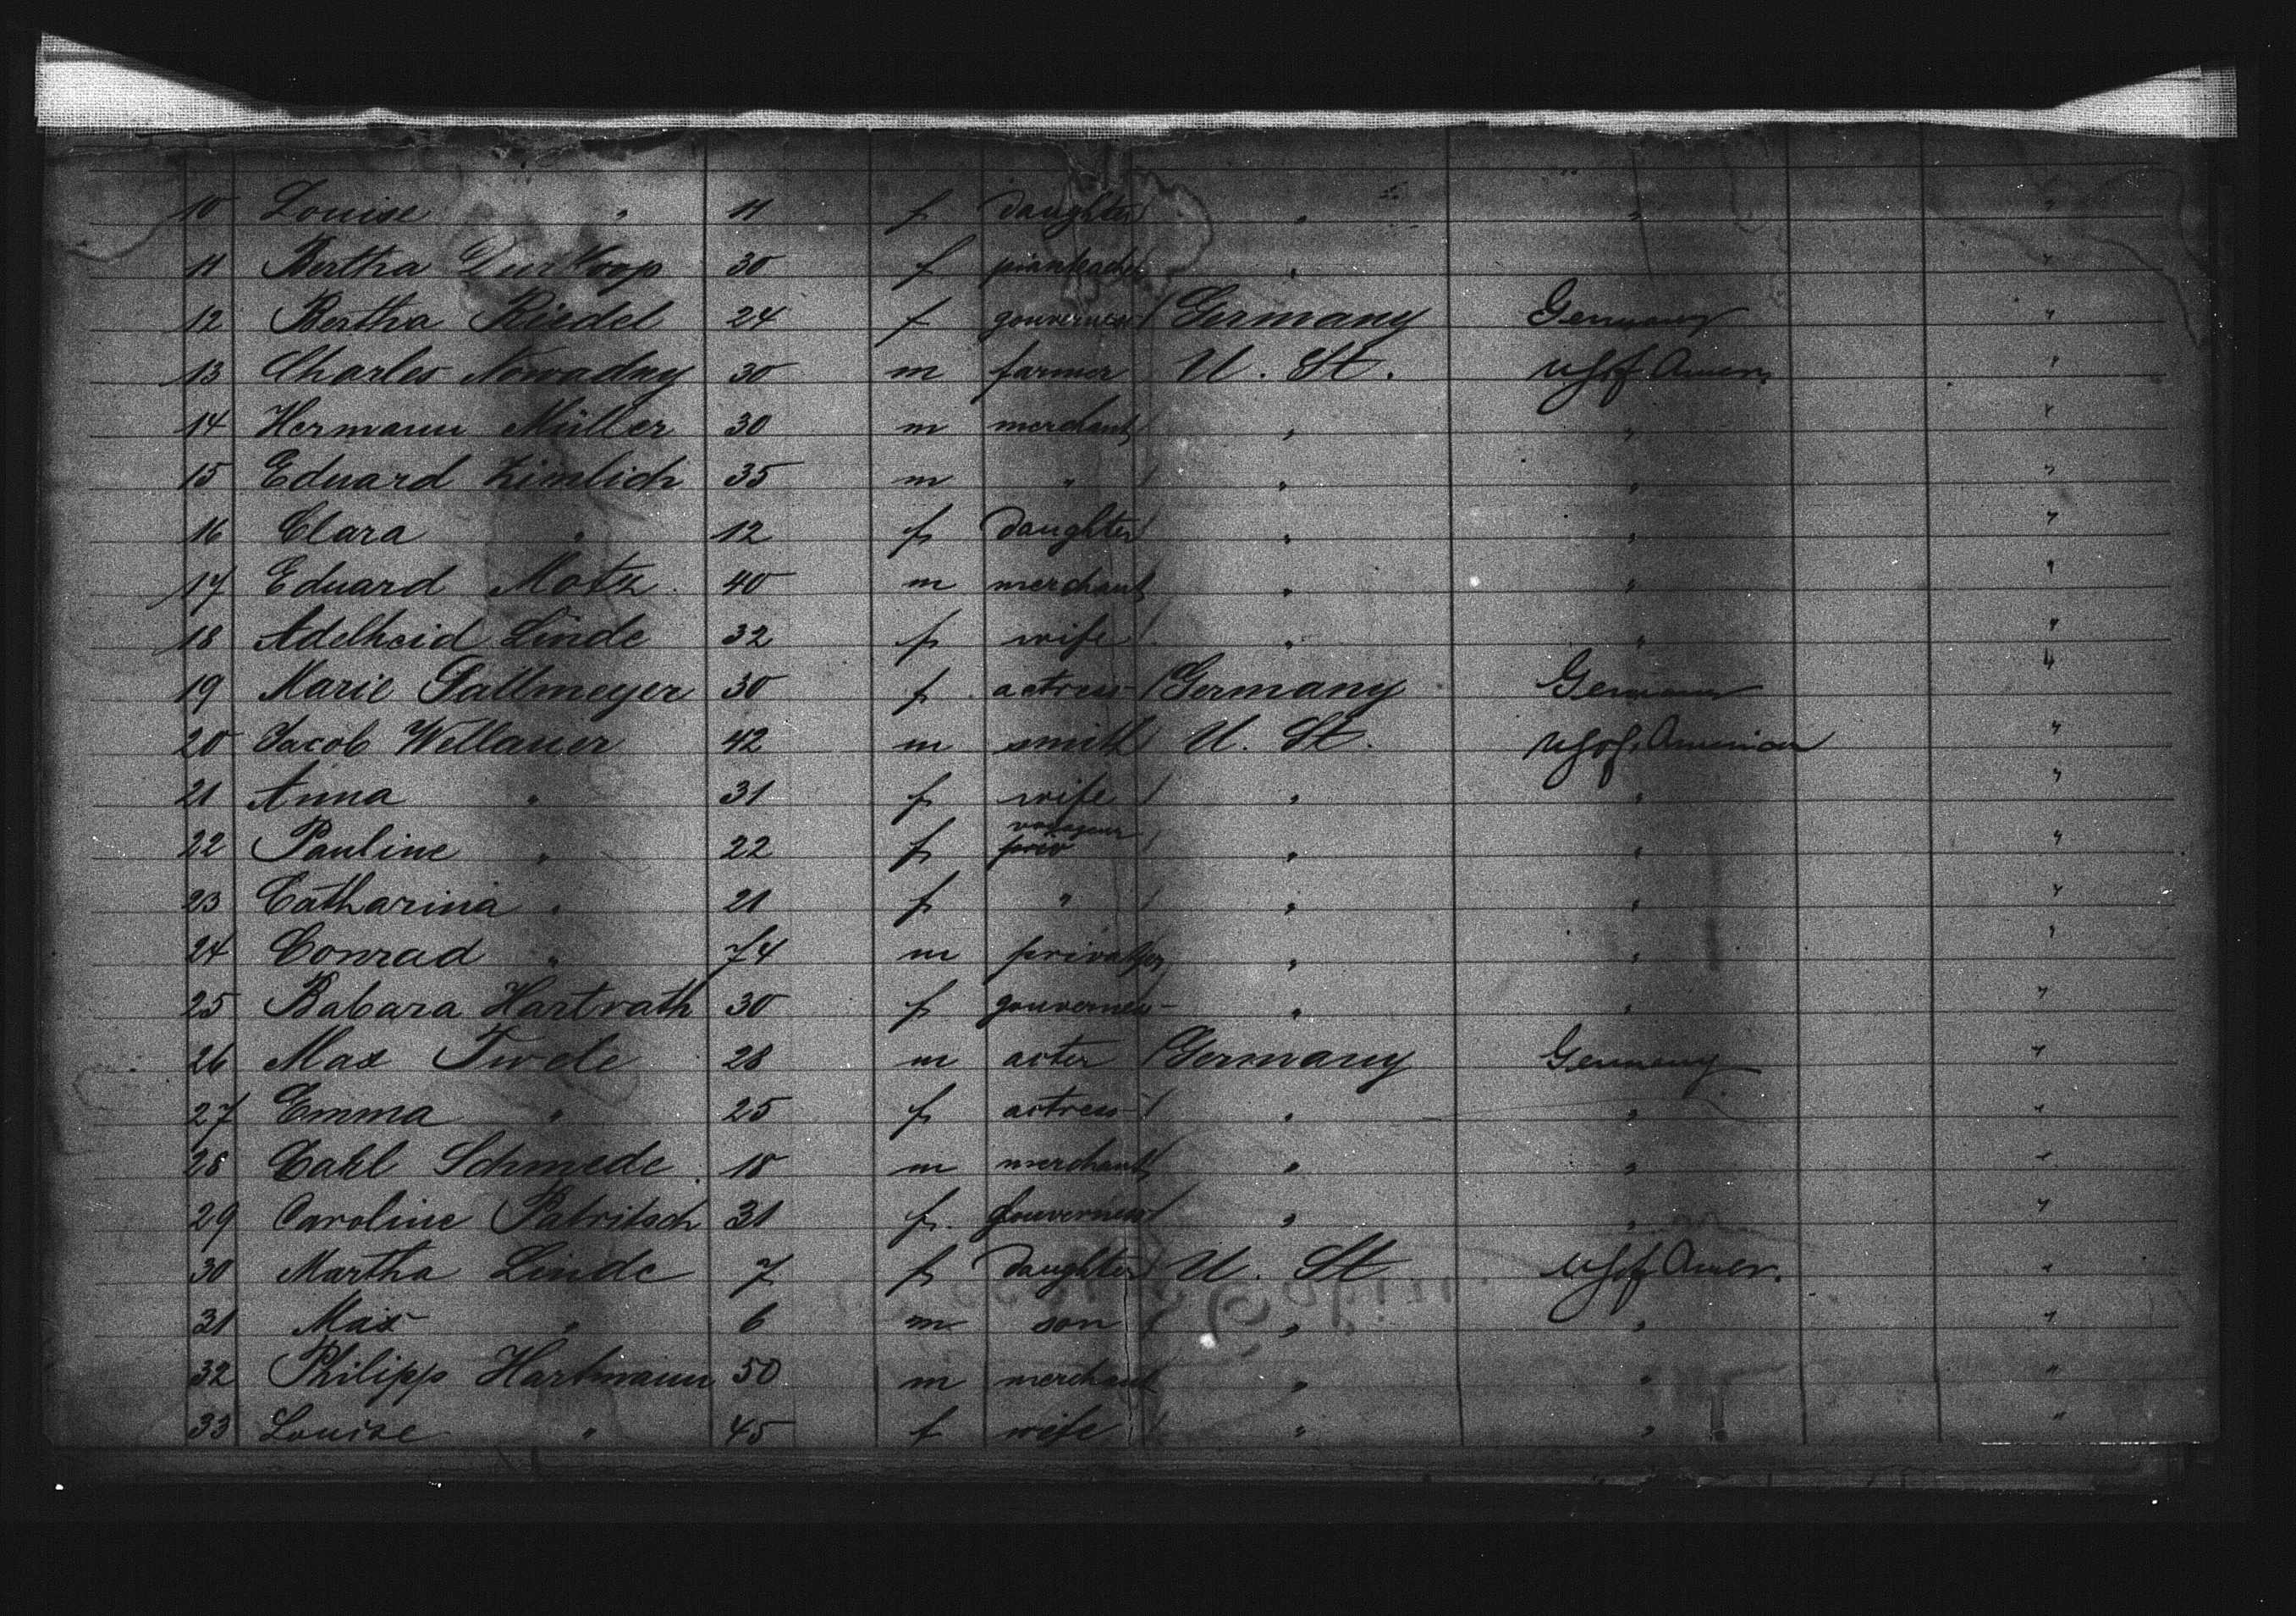 10 Louise " 11 f daughter " " "
11 Bertha Durkoop 30 f " "
12 Bertha Riedel 24 f gouverness Germany Germany "
13 Charles Nowadny 30 m farmer U. St. USof Amer. "
14 Hermann Müller 30 m merchant " " "
15 Eduard Zimlich 35 m " " " "
16 Clara " 12 f daughter " " "
17 Eduard Motz 40 m merchant " " "
18 Adelheid Linde 32 f wife " " "
19 Marie Gallmeyer 30 f actress Germany Germany "
20 Jacob Wellauer 42 m smith U. St. USof America "
21 Anna " 31 f wife " " "
22 Pauline " 22 f " " "
23 Catharina " 21 f " " " "
24 Conrad " 74 m " " "
25 Babara Hartrath 30 f gouverness " " "
26 Max Twele 28 m acter Germany Germany "
27 Emma " 25 f actress " " "
28 Cakl Schmede 18 m merchant " " "
29 Caroline Patritsch 31 f. gouverness " " "
30 Martha Linde 7 f daughter U. St USof Amer. "
31 Max " 6 m son " " "
32 Philipp Hartmann 50 m merchant " " "
33 Louise " 45 f wife " " "